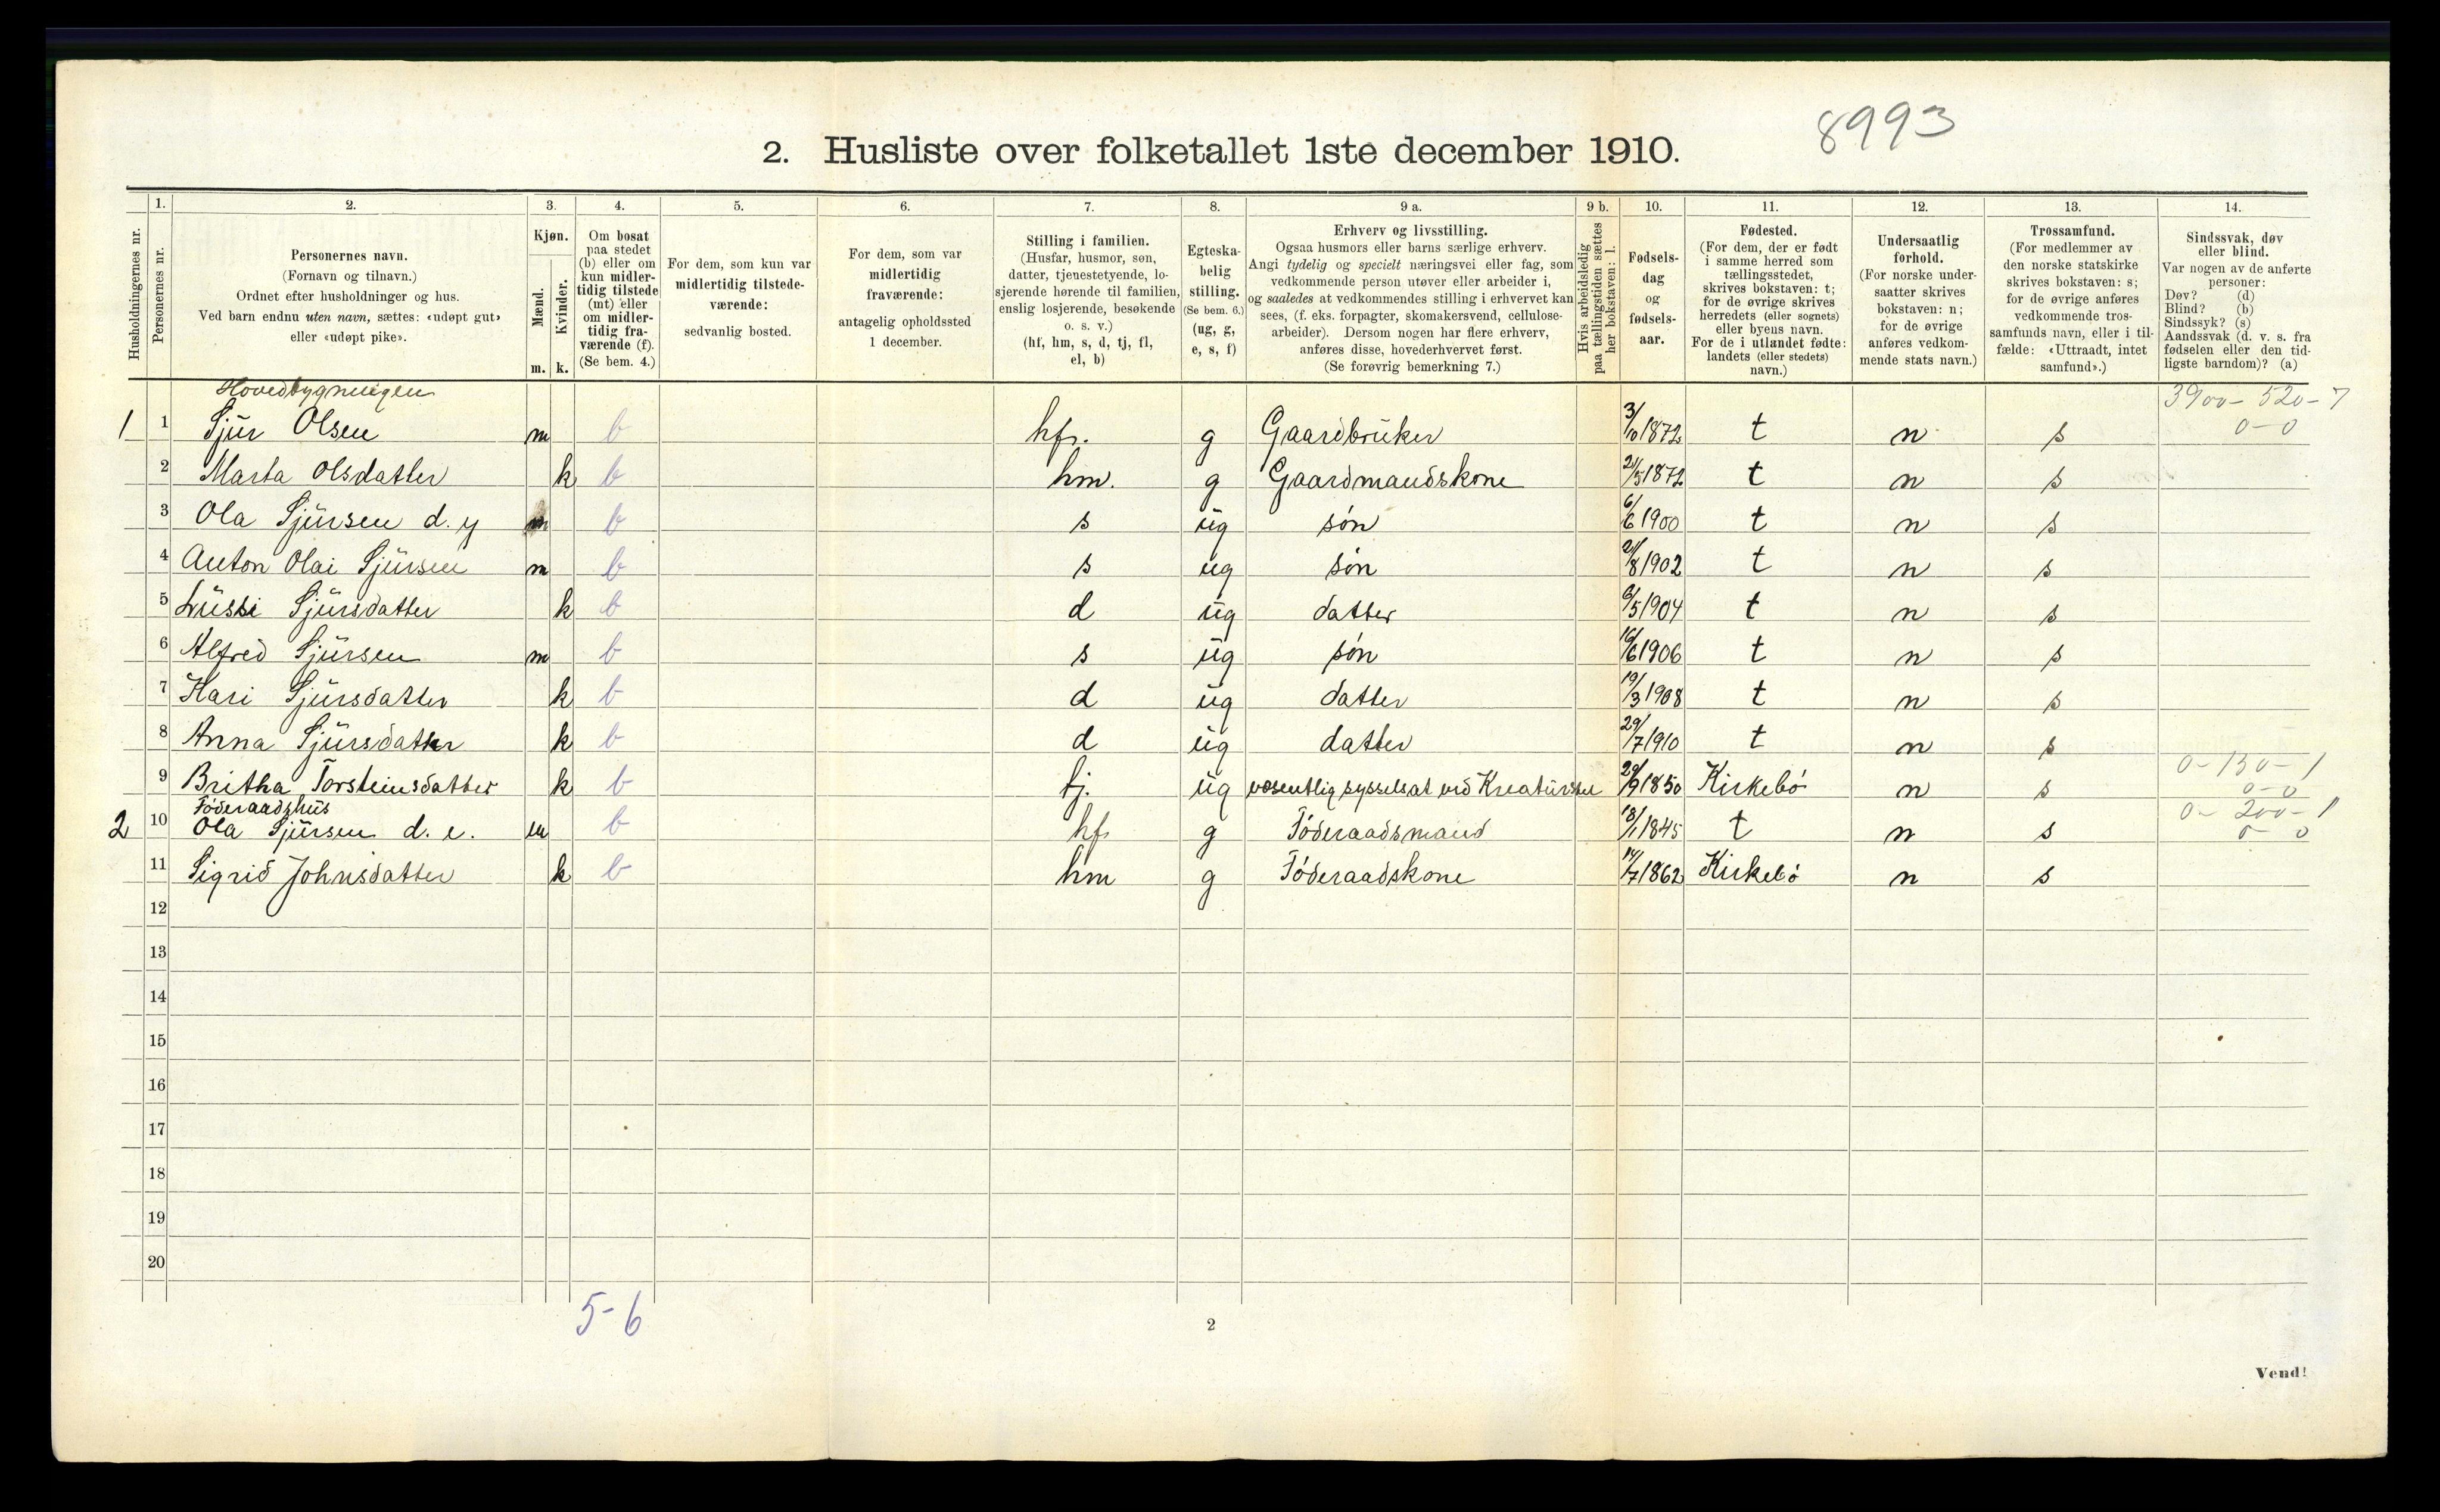 8993
2. Husliste over folketallet 1ste december 1910.
Husholdningernes nr.
1.
Personernes nr.
2.
Personernes navn.
(Fornavn og tilnavn.)
Ordnet efter husholdninger og hus.
Ved barn endnu uten navn, sættes: «udøpt gut»
eller «udøpt pike».
3.
Kjøn.
Mænd.
Kvinder.
m. k.
4.
Om bosat
paa stedet
(b) eller om
kun midler-
tidig tilstede
(mt) eller
om midler-
tidig fra-
værende (f).
(Se bem. 4.)
5.
For dem, som kun var
midlertidig tilstede-
værende:
sedvanlig bosted.
6.
For dem, som var
midlertidig
fraværende:
antagelig opholdssted
1 december.
7.
Stilling i familien.
(Husfar, husmor, søn,
datter, tjenestetyende, lo-
sjerende hørende til familien,
enslig losjerende, besøkende
o. s. v.)
(hf, hm, s, d, tj, fl,
el, b)
8.
Egteska-
belig
stilling.
(Se bem. 6.)
(ug, g,
e, s, f)
9 a.
Erhverv og livsstilling.
Ogsaa husmors eller barns særlige erhverv.
Angi tydelig og specielt næringsvei eller fag, som
vedkommende person utøver eller arbeider i,
og saaledes at vedkommendes stilling i erhvervet kan
sees, (f. eks. forpagter, skomakersvend, cellulose-
arbeider). Dersom nogen har flere erhverv,
anføres disse, hovederhvervet først.
(Se forøvrig bemerkning 7.)
9 b.
Hvis arbeidsledig
paa tællingstiden sættes
her bokstaven: l.
10.
Fødsels-
dag
og
fødsels-
aar.
11.
Fødested.
(For dem, der er født
i samme herred som
tællingsstedet,
skrives bokstaven: t;
for de øvrige skrives
herredets (eller sognets)
eller byens navn.
For de i utlandet fødte:
landets (eller stedets)
navn.)
12.
Undersaatlig
forhold.
(For norske under-
saatter skrives
bokstaven: n;
for de øvrige
anføres vedkom-
mende stats navn.)
13.
Trossamfund.
(For medlemmer av
den norske statskirke
skrives bokstaven: s;
for de øvrige anføres
vedkommende tros-
samfunds navn, eller i til-
fælde: «Uttraadt, intet
samfund».)
14.
Sindssvak, døv
eller blind.
Var nogen av de anførte
personer:
Døv? (d)
Blind? (b)
Sindssyk? (s)
Aandssvak (d. v. s. fra
fødselen eller den tid-
ligste barndom)? (a)
Hovedbygningen 3900 - 520 - 7
1 1 Sjur Olsen m b hf. g Gaardbruker 3/10 1872 t n s 0 - 0
2 Marta Olsdatter k b hm. g Gaardmandskone 21/5 1872 t n s
3 Ola Sjursen d. y m b s ug søn 6/6 1900 t n s
4 Anton Olai Sjursen m b s ug søn 21/8 1902 t n s
5 Lussi Sjursdatter k b d ug datter 6/5 1904 t n s
6 Alfred Sjursen m b s ug søn 16/6 1906 t n s
7 Kari Sjursdatter k b d ug datter 19/3 1908 t n s
8 Anna Sjursdatter k b d ug datter 29/7 1910 t n s
0 - 130 - 1
9 Britha Torsteinsdatter k b tj. ug væsentlig sysselsat ved Kreaturstel 29/9 1850 Kirkebø n s 0 - 0
Føderaadshus 0 - 200 - 1
2 10 Ola Sjursen d. e. m b hf g Føderaadsmand 18/1 1845 t n s 0 - 0
11 Sigrid Johnsdatter k b hm g Føderaadskone 14/7 1862 Kirkebø n s
12
13
14
15
16
17
18
19
20
5-6
2
Vend!